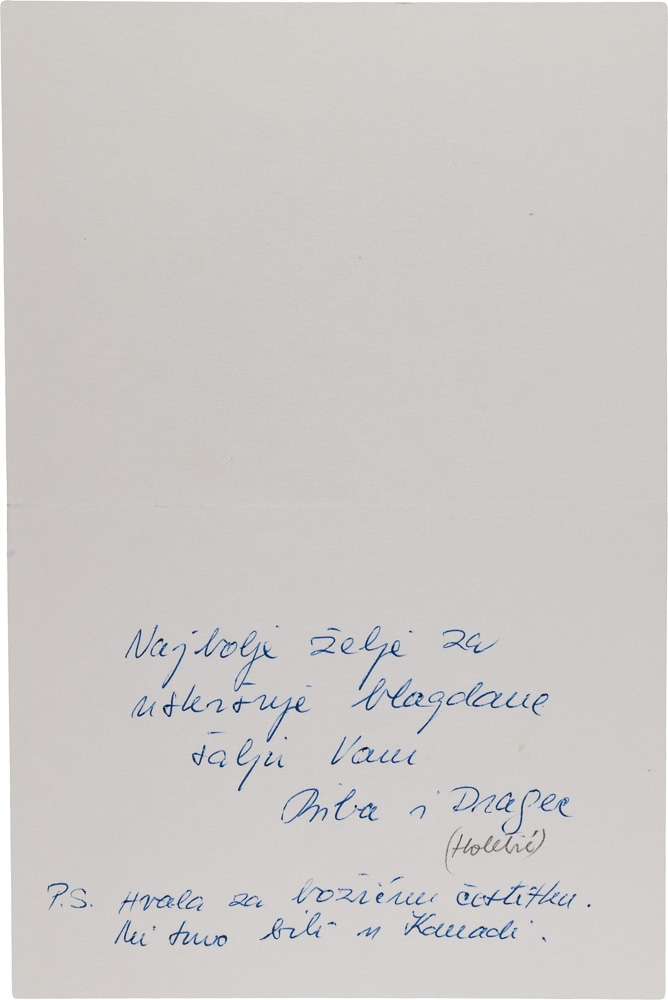 Najbolje želje za
uskršnje blagdane
šalju Vam
Biba i Dragec
(Holetić)
P.S. Hvala za božićnu čestitku.
Mi smo bili u Kanadi.